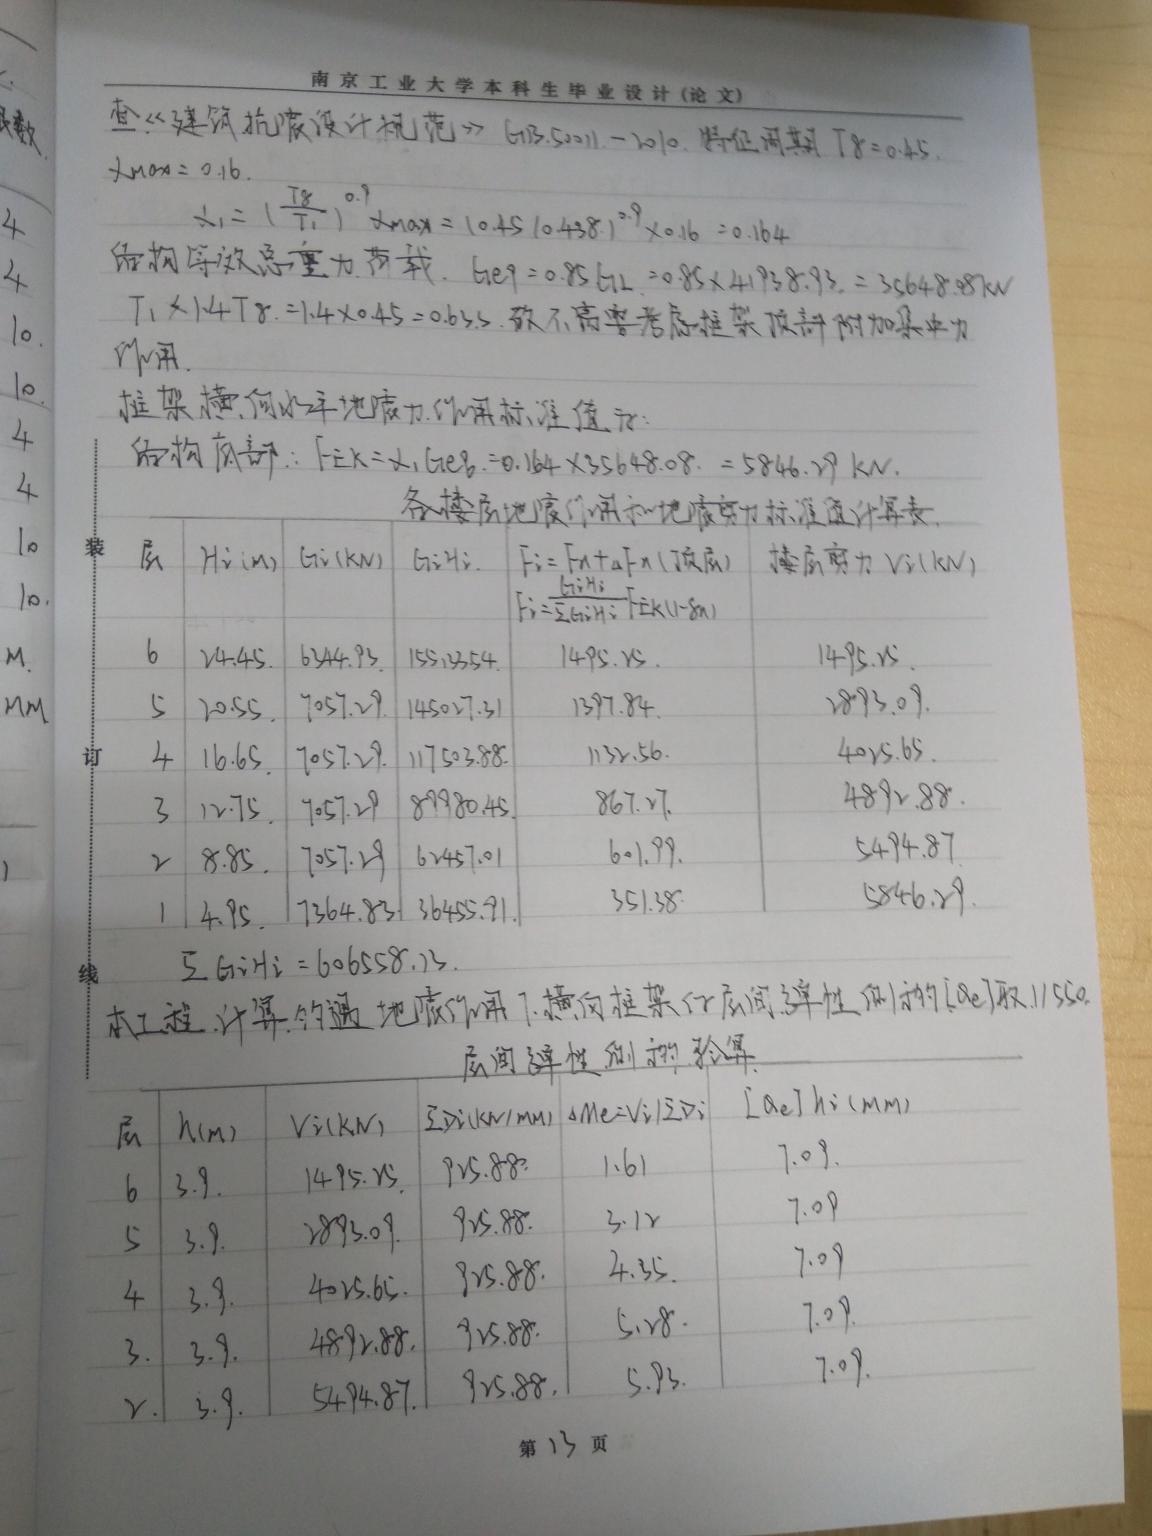 南京工业大学本科生毕业设计(论文)
查《建筑抗震设计规范》GB50011-2010. 特征周期 Tg=0.45.
αmax=0.16.
α1=(Tg/T1)^0.9 αmax=(0.45/0.438)^0.9×0.16=0.164
结构等效总重力荷载. Geq=0.85GL=0.85×41938.93.=35648.08kN
T1<1.4Tg.=1.4×0.45=0.63s.故不需要考虑框架顶部附加集中力
作用.
框架横向水平地震力作用标准值为:
结构底部: FEK=α1Geq.=0.164×35648.08.=5846.29 KN.
各楼层地震作用和地震剪力标准值计算表.
层 Hi(m) Gi(KN) GiHi. Fi=Fn+ΔFn(顶层) 楼层剪力Vi(KN)
Fi=GiHi/ΣGiHi FEK(1-δn)
6 24.45. 6344.93 155133.54. 1495.25. 1495.25.
5 20.55. 7057.29. 145027.31 1397.84. 2893.09.
4 16.65. 7057.29. 117503.88. 1132.56. 4025.65.
3 12.75. 7057.29 89980.45. 867.27. 4892.88.
2 8.85. 7057.29 62457.01 601.99. 5494.87
1 4.95. 7364.83 36455.91. 351.38. 5846.29.
ΣGiHi=606558.13.
本工程.计算.的遇地震作用下.横向框架 层间弹性侧移的[θe]取.1/550.
层间弹性侧移的验算
层 h(m) Vi(KN) ΣDi(KN/mm) ΔMe=Vi/ΣDi [θe]hi(mm)
6 3.9. 1495.25. 925.88. 1.61 7.09.
5 3.9. 2893.09. 925.88. 3.12 7.09
4 3.9. 4025.65. 925.88. 4.35. 7.09
3. 3.9. 4892.88. 925.88. 5.28. 7.09.
2. 3.9. 5494.87. 925.88. 5.93. 7.09.
第13页
装
订
线
数
4
4
10.
10.
4
4
10
10.
M.
MM